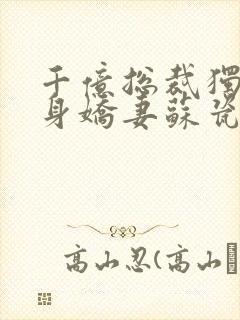 千億總裁獨
身嬌妻蘇瓷
高山忍(高山